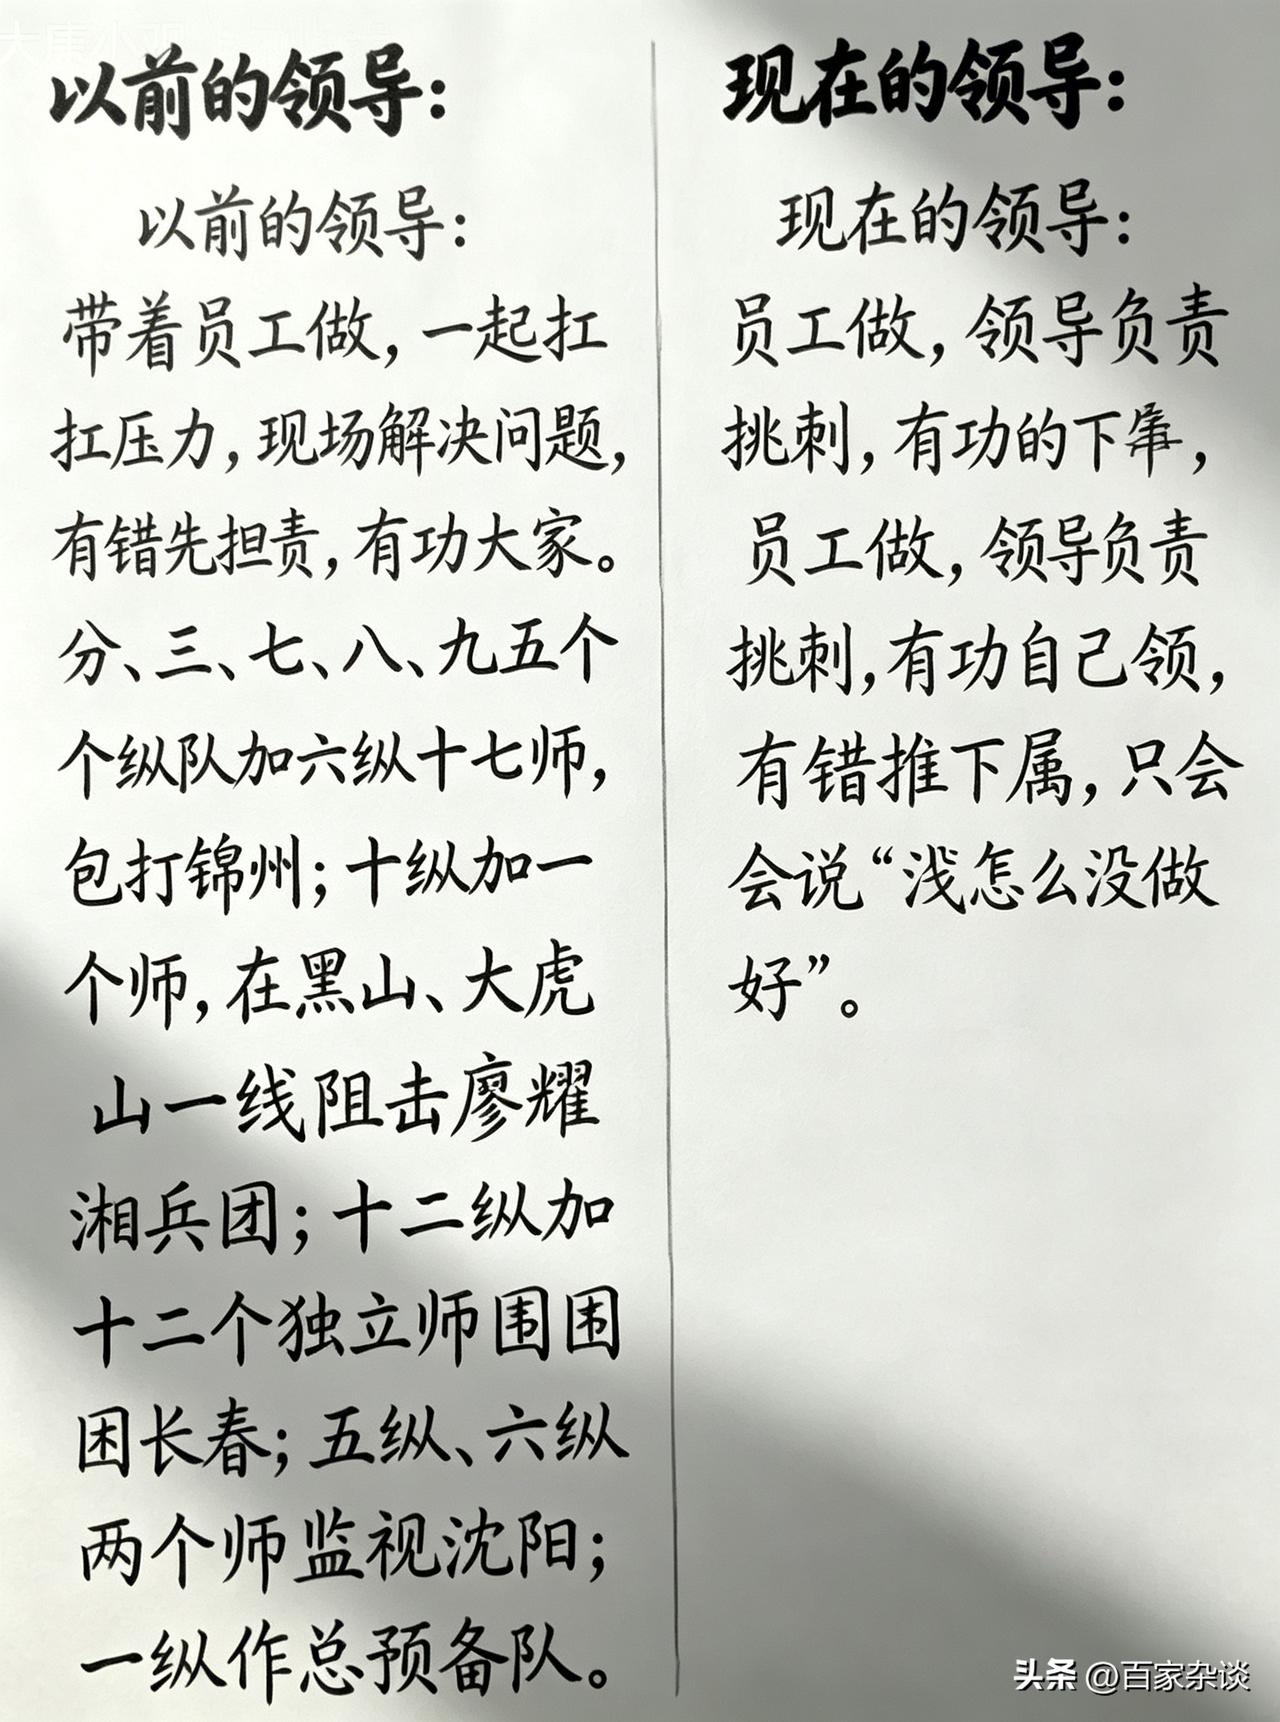 以前的领导：
以前的领导：
带着员工做，一起扛
扛压力，现场解决问题，
有错先担责，有功大家。
分、三、七、八、九五个
个纵队加六纵十七师，
包打锦州；十纵加一
个师，在黑山、大虎
山一线阻击廖耀
湘兵团；十二纵加
十二个独立师围围
困长春；五纵、六纵
两个师监视沈阳；
一纵作总预备队。
现在的领导：
现在的领导：
员工做，领导负责
挑刺，有功的下，
员工做，领导负责
挑刺，有功自己领，
有错推下属，只会
会说“浅怎么没做
好”。
头条 @百家杂谈